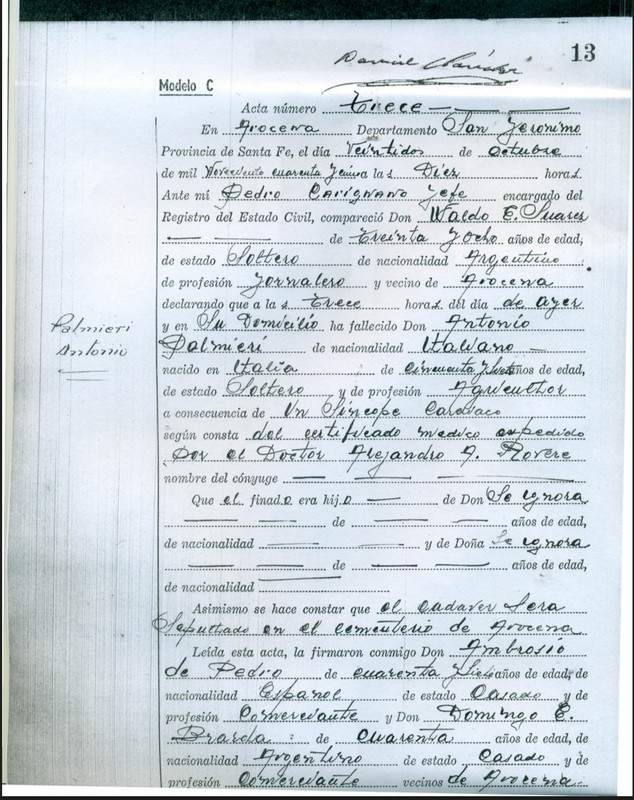 13
Modelo C
Acta número Trece
En Arocena Departamento San Jeronimo
Provincia de Santa Fe, el día Veintidos de Octubre
de mil Novecientos cuarenta a las Diez horas.
Ante mí Pedro Carignano Jefe encargado del
Registro del Estado Civil, compareció Don Waldo E. Suarez
de Treinta y ocho años de edad,
de estado Soltero de nacionalidad Argentino
de profesión Jornalero y vecino de Arocena
declarando que a las Trece horas del día de ayer
y en Su Domicilio ha fallecido Don Antonio
Palmieri
Antonio
Palmieri de nacionalidad Italiano
nacido en Italia de cincuenta y siete años de edad,
de estado Soltero y de profesión Agricultor
a consecuencia de Un Síncope Cardiaco
según consta del certificado medico expedido
por el Doctor Alejandro A. Rovere
nombre del cónyuge
Que el finado era hijo de Don Se ignora
de años de edad,
de nacionalidad y de Doña Se ignora
de años de edad,
de nacionalidad
Asimismo se hace constar que el cadaver Sera
Sepultado en el cementerio de Arocena
Leída esta acta, la firmaron conmigo Don Ambrosio
de Pedro de cuarenta y años de edad, de
nacionalidad Español de estado Casado y de
profesión Comerciante y Don Domingo E.
Brarda de cuarenta años de edad, de
nacionalidad Argentino de estado Casado y de
profesión Comerciante vecinos de Arocena